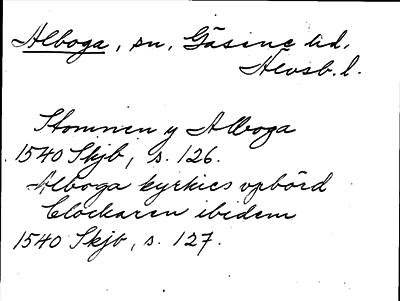 Alboga, sn, Gäsene hd.
Älvsb. l.
Stomnen y Alboga
1540 Skjb, s. 126.
Alboga kyrkies vpbörd
Clockaren ibidem
1540 Skjb, s. 127.